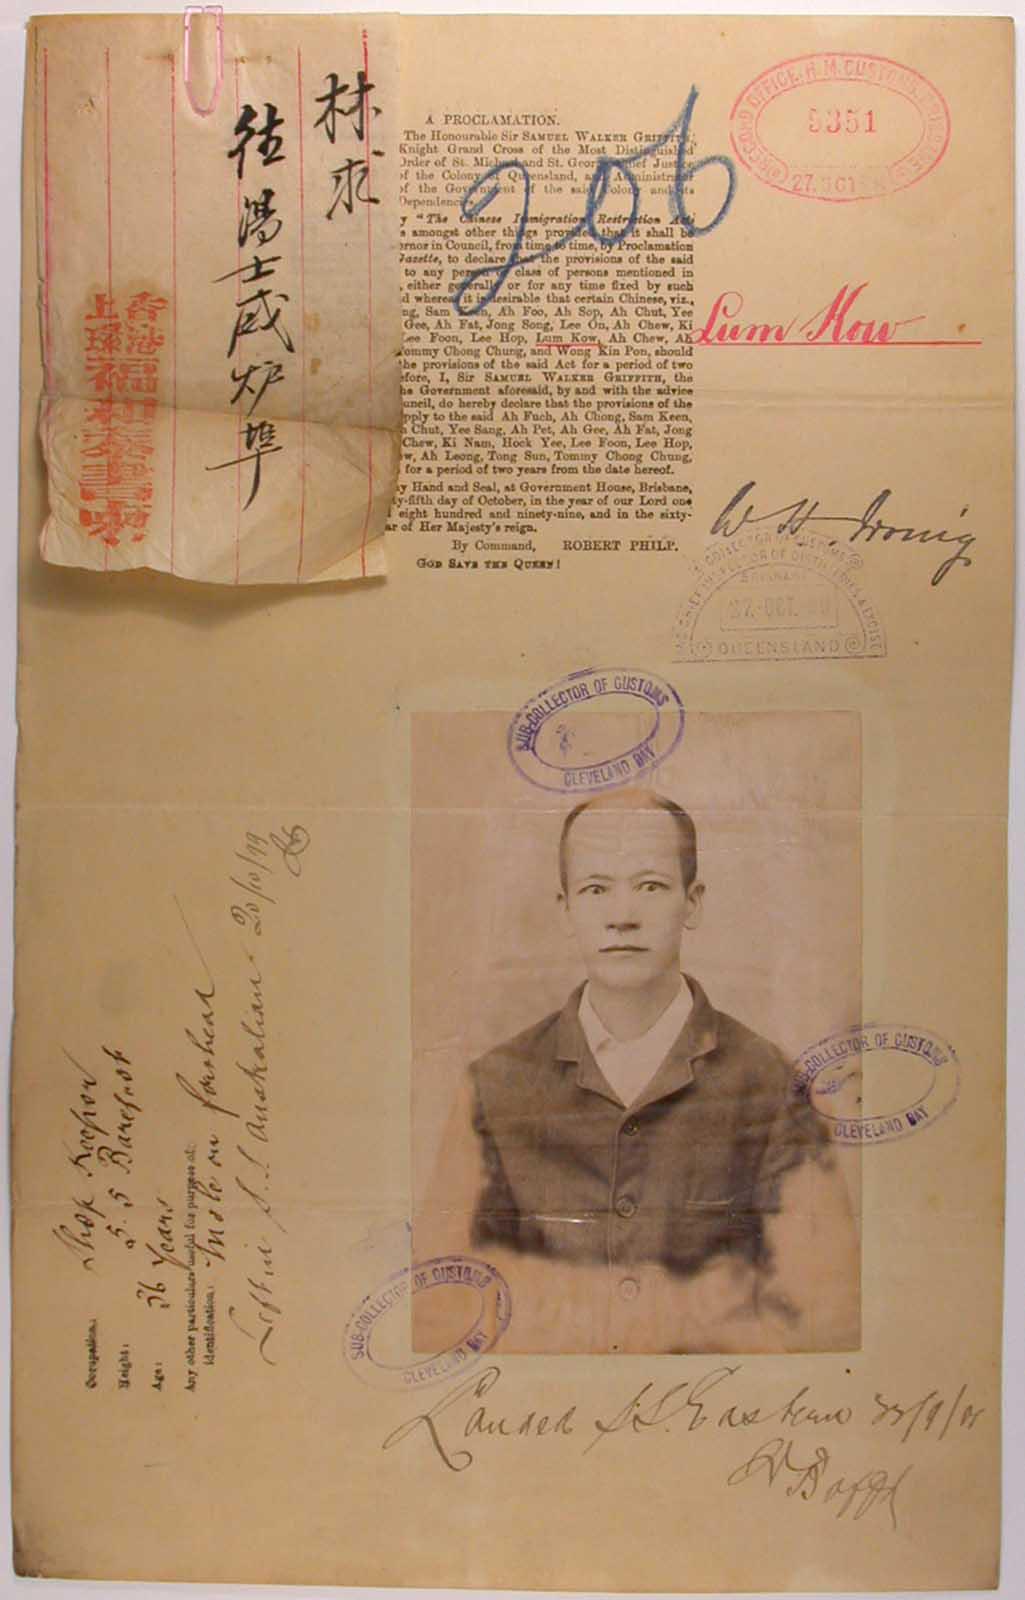 林求
往湯士威炉埠
香港
上環
A PROCLAMATION.
The Honourable Sir SAMUEL WALKER GRIFFITH,
Knight Grand Cross of the Most Distinguished
Order of St. Michael and St. George, Chief Justice
of the Colony of Queensland, and Administrator
of the Government of the said Colony and its
Dependencies.
y "The Chinese Immigration Restriction Act
s amongst other things provided that it shall be
ernor in Council, from time to time, by Proclamation
Gazette, to declare that the provisions of the said
to any person or class of persons mentioned in
, either generally or for any time fixed by such
d whereas it is desirable that certain Chinese, viz.,
ng, Sam Keen, Ah Foo, Ah Sop, Ah Chut, Yee
Gee, Ah Fat, Jong Song, Lee On, Ah Chew, Ki
Lee Foon, Lee Hop, Lum Kow, Ah Chew, Ah
Tommy Chong Chung, and Wong Kin Pon, should
the provisions of the said Act for a period of two
efore, I, Sir SAMUEL WALKER GRIFFITH, the
he Government aforesaid, by and with the advice
uncil, do hereby declare that the provisions of the
pply to the said Ah Fuch, Ah Chong, Sam Keen,
h Chut, Yee Sang, Ah Pet, Ah Gee, Ah Fat, Jong
Chew, Ki Nam, Hock Yee, Lee Foon, Lee Hop,
ew, Ah Leong, Tong Sun, Tommy Chong Chung,
for a period of two years from the date hereof.
my Hand and Seal, at Government House, Brisbane,
ty-fifth day of October, in the year of our Lord one
eight hundred and ninety-nine, and in the sixty-
ar of Her Majesty's reign.
By Command, ROBERT PHILP.
GOD SAVE THE QUEEN!
206
RECORD OFFICE, H.M. CUSTOMS, BRISBANE
9351
27. OCT
Lum Kow
W H Irving
COLLECTOR OF CUSTOMS
CHIEF INSPECTOR OF DISTILLERIES & EXCISE
BRISBANE
27. OCT. 99
QUEENSLAND
SUB-COLLECTOR OF CUSTOMS
CLEVELAND BAY
SUB-COLLECTOR OF CUSTOMS
CLEVELAND BAY
SUB-COLLECTOR OF CUSTOMS
CLEVELAND BAY
Occupation: Shop Keeper
Height: 5.5 Barefoot
Age: 36 Years
Any other particulars useful for purpose of
identification: Mole on forehead
Left in S.S Australian 20/10/99
Landed SS. Eastern